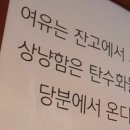 여유는 잔고에서
상냥함은 탄수화물
당분에서 온다